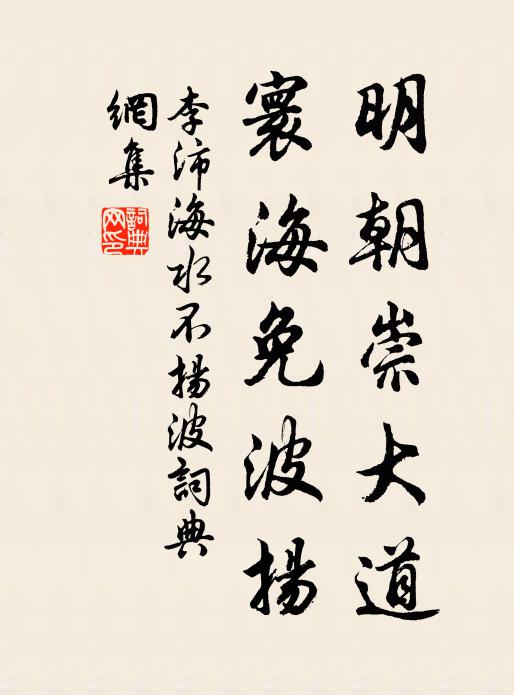 明朝崇大道
寰海免波揚
李沛海水不揚波詞典
網集
詞典網印